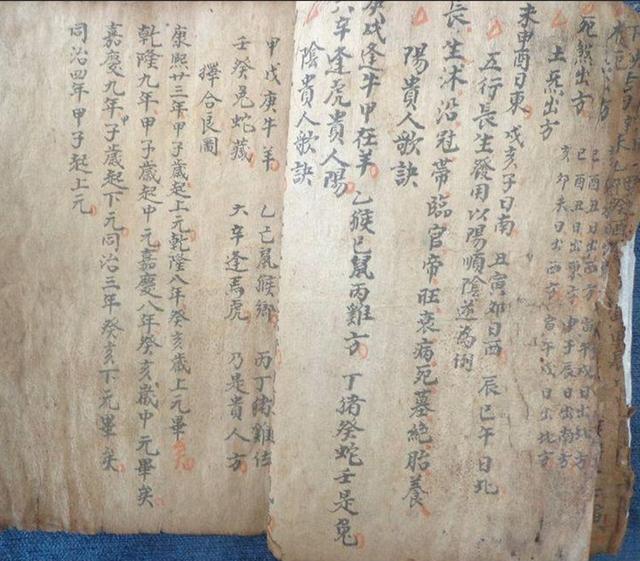 死炁出方
土炁出方
亥卯未日出西方 寅午戌日出北方
未申酉日東 戌亥子日南 丑寅卯日西 辰巳午日北
五行長生發用以陽順陰逆為例
長生沐沿冠帶臨官帝旺衰病死墓絕胎養
陽貴人歌訣
庚戌逢牛甲在羊 乙猴己鼠丙雞方 丁猪癸蛇壬是兔
六辛逢虎貴人陽
陰貴人歌訣
甲戊庚牛羊 乙己鼠猴鄉 丙丁猪雞位
壬癸兔蛇藏 六辛逢馬虎 乃是貴人方
擇合良圖
康熙廿三年甲子歲起上元乾隆八年癸亥歲上元畢
乾隆九年甲子歲起中元嘉慶八年癸亥歲中元畢矣
嘉慶九年子歲起下元同治三年癸亥下元畢矣
同治四年甲子起上元